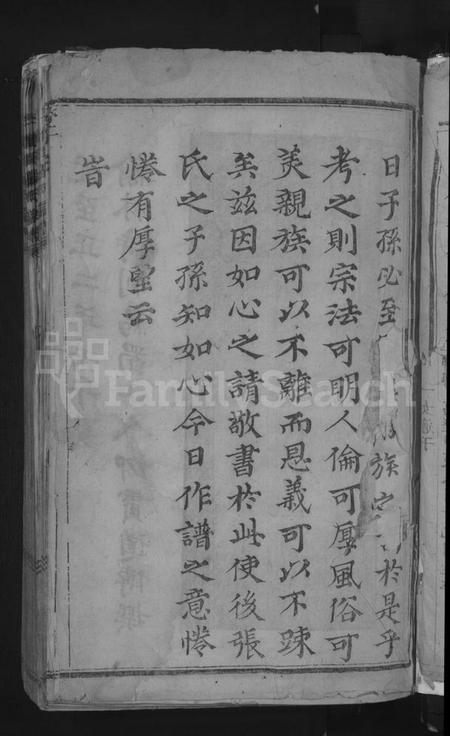 日子孫必至族於是乎
考之則宗法可明人倫可厚風俗可
美親族可以不離而恩義可以不踈
矣茲因如心之請敬書於此使後張
氏之子孫知如心今日作譜之意惓
惓有厚望云
旹
FamilySearch